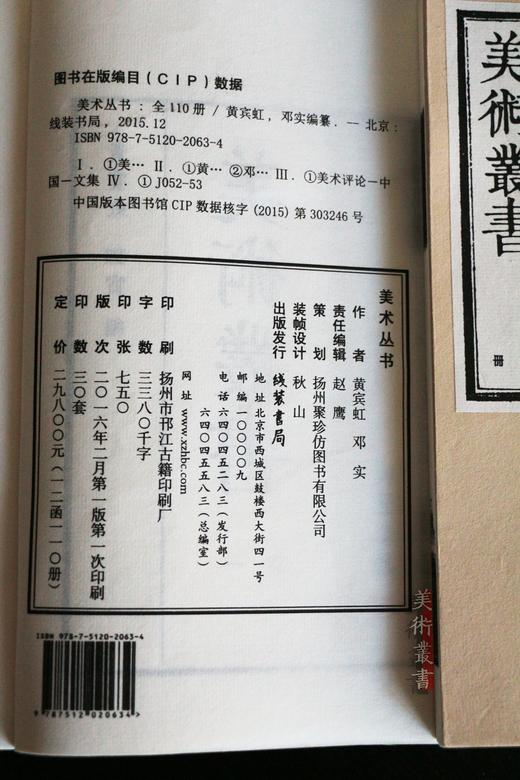 图书在版编目(CIP)数据
美术丛书:全110册/黄宾虹,邓实编纂.—北京:
线装书局,2015.12
ISBN 978-7-5120-2063-4
Ⅰ.①美… Ⅱ.①黄… ②邓… Ⅲ.①美术评论—中
国—文集 Ⅳ.①J052-53
中国版本图书馆CIP数据核字(2015)第303246号
美术丛书
作者 黄宾虹 邓实
责任编辑 赵鹰
策划 扬州聚珍仿图书有限公司
装帧设计 秋山
出版发行 线装书局
地址 北京市西城区鼓楼西大街四一号
邮编 一〇〇〇〇九
电话 六四〇四五二八三(发行部)
六四〇四五五八三(总编室)
网址 www.xzhbc.com
印刷 扬州市邗江古籍印刷厂
字数 三三八〇千字
印张 七五〇
版次 二〇一六年二月第一版第一次印刷
印数 三〇套
定价 二九八〇〇元(一二函一一〇册)
ISBN 978-7-5120-2063-4
9 787512 020634 >
美術叢書
冊
美術叢書